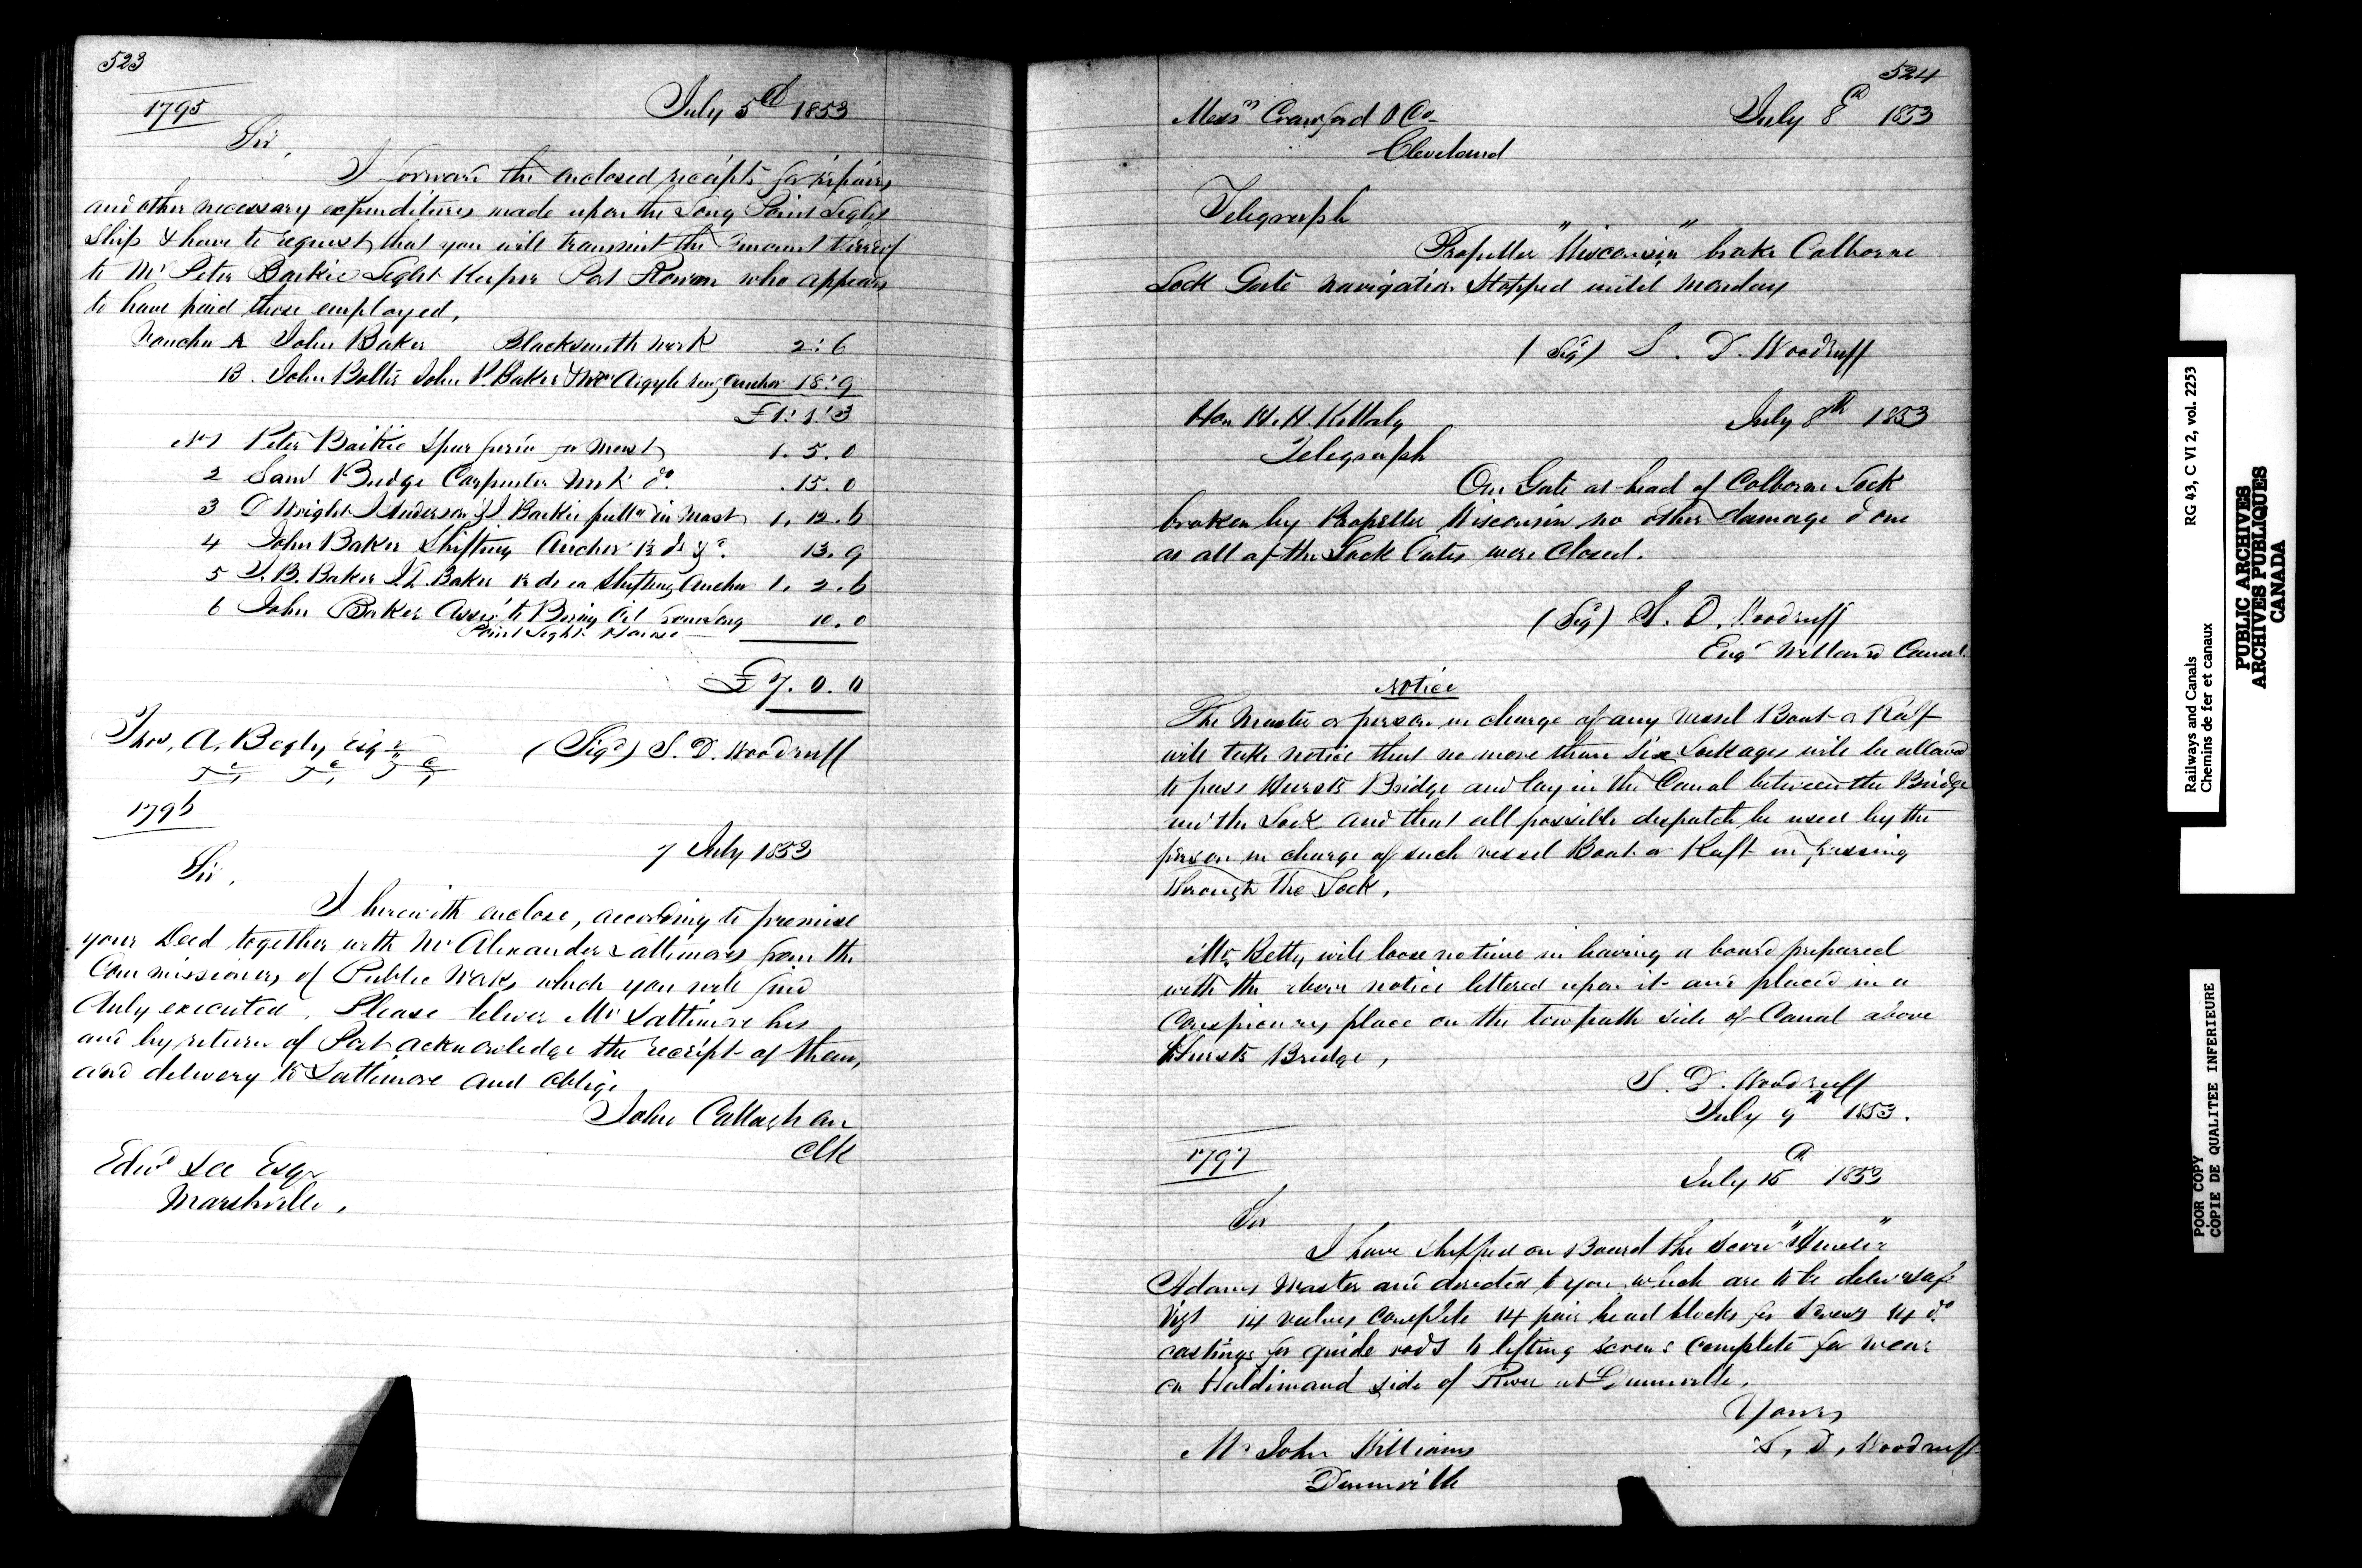 523
1795
July 5th 1853
Sir,
I forward the enclosed receipts for repairs
and other necessary expenditures made upon the Long Point Light
Ship & have to request that you will transmit the amount thereof
to Mr Peter Baikie Light Keeper Port Rowan who appears
to have paid those employed,
Voucher A John Baker Blacksmith Work 2: 6
B. John Bolter John P. Baker Argyle Anchor 18: 9
£1: 1: 3
No 1 Peter Baikie Spar for Mast 1. 5. 0
2 Saml Budge Carpenter Work do. .15. 0
3 D Wright J Anderson & J Baikie putting in Mast 1. 12. 6
4 John Baker Shifting Anchor 13. 9
5 J. B. Baker J. L. Baker Shifting Anchor 1. 2. 6
6 John Baker Assisg to Bring Oil from Long 10. 0
Point Light House
£7. 0. 0
Thos. A. Begly Esqr
(Sigd) S. D. Woodruff
1796
7 July 1853
Sir,
I herewith enclose, according to promise
your Deed together with Mr Alexander Lattimores from the
Commissioners of Public Works which you will find
duly executed. Please deliver Mr Lattimore his
and by return of Post acknowledge the receipt of them,
and delivery to Lattimore and oblige
John Callaghan
Clk
Edwd Lee Esqr
Marshville,
524
Messrs Crawford & Co
July 8th 1853
Cleveland
Telegraph
Propeller "Wisconsin" broke Colborne
Lock Gate navigation Stopped until Monday
(Sigd) S. D. Woodruff
Hon H. H. Killaly
July 8th 1853
Telegraph
One Gate at head of Colborne Lock
broken by Propeller Wisconsin no other damage done
as all of the Lock Gates were Closed.
(Sigd) S. D. Woodruff
Engr Welland Canal
Notice
The Master or person in charge of any vessel Boat or Raft
will take notice that no more than Six Lockages will be allowed
to pass Hursts Bridge and lay in the Canal between the Bridge
and the Lock and that all possible despatch be used by the
person in charge of such vessel Boat or Raft in passing
through the Lock.
Mr. Betty will loose no time in having a board prepared
with the above notice lettered upon it and placed in a
Conspicuous place on the towpath side of Canal above
Hursts Bridge,
S. D. Woodruff
July 9th 1853.
1797
July 15th 1853
Sir
I have shipped on Board the Scow
Adams Master and directed to you which are to be
Vizt 14 valves complete 14 pair head blocks for Screws 14 do
castings for guide rods & lifting screws complete for wear
on Haldimand side of River at Dunnville.
Yours
S. D. Woodruff
Mr John Williams
Dunnville
Railways and Canals RG 43, C VI 2, vol. 2253
Chemins de fer et canaux
PUBLIC ARCHIVES
ARCHIVES PUBLIQUES
CANADA
POOR COPY
COPIE DE QUALITEE INFERIEURE